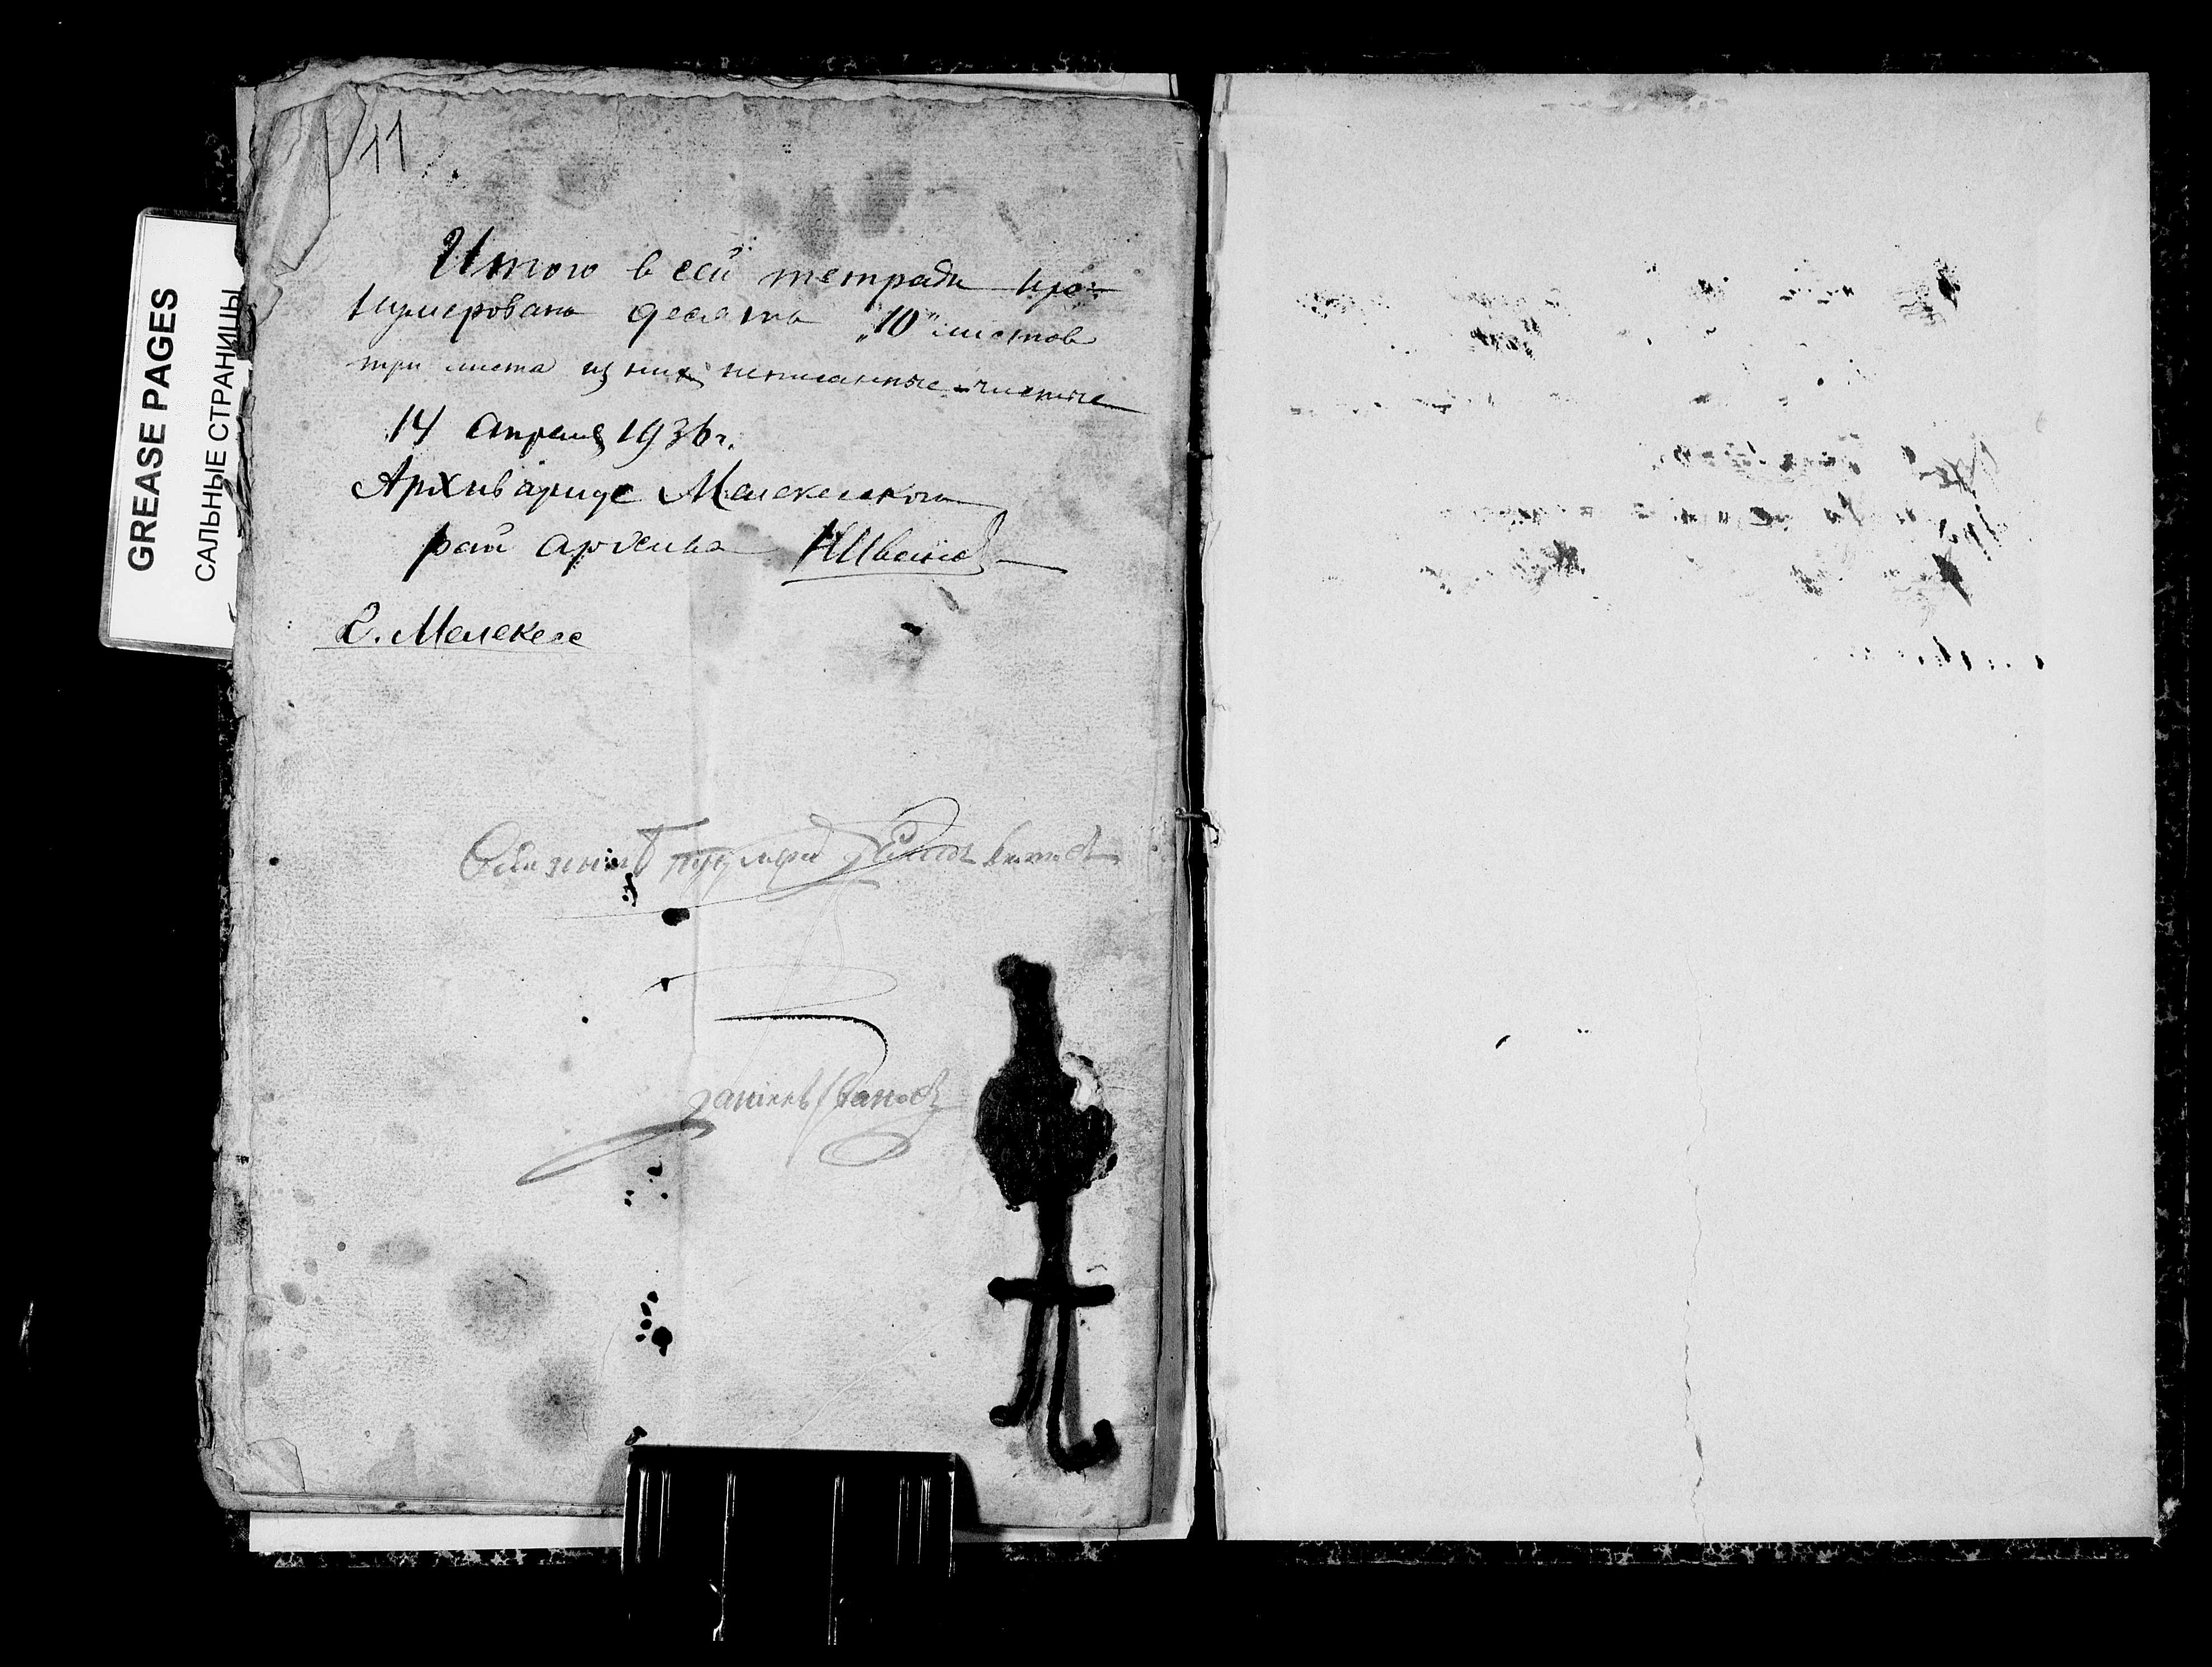 GREASE PAGES
САЛЬНЫЕ СТРАНИЦЫ
11
Итого в сей тетради про-
нумеровано десять „10“ листов
три листа из них неписанные - чистые
14 апреля 1936 г.
Архивариус Мелекесского
рай архива
С. Мелекесс